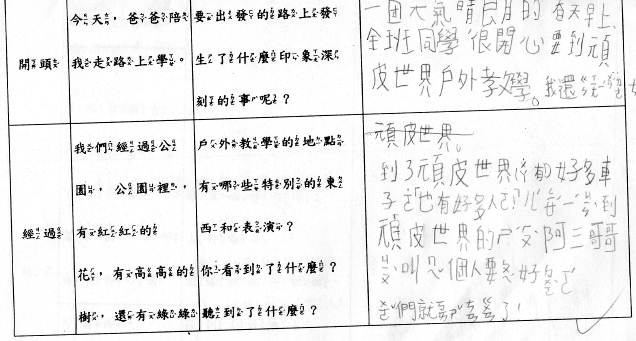 今天,爸爸陪
我走路上學。
開頭
要出發的路上發
生了什麼印象深
刻的事呢?
一個天氣晴朗的春天早上
全班同學很開心要到頑
皮世界戶外教學。我還
頑皮世界。
我們經過公
園,公園裡,
有紅紅的
花,有高高的
樹,還有綠綠
經過
戶外教學的地點
有哪些特別的東
西和表演?
你看到了什麼?
聽到了什麼?
到了頑皮世界 好多車
子 也有好多人 每一 到
頑皮世界的 阿三哥哥
叫 個人要 好
們就